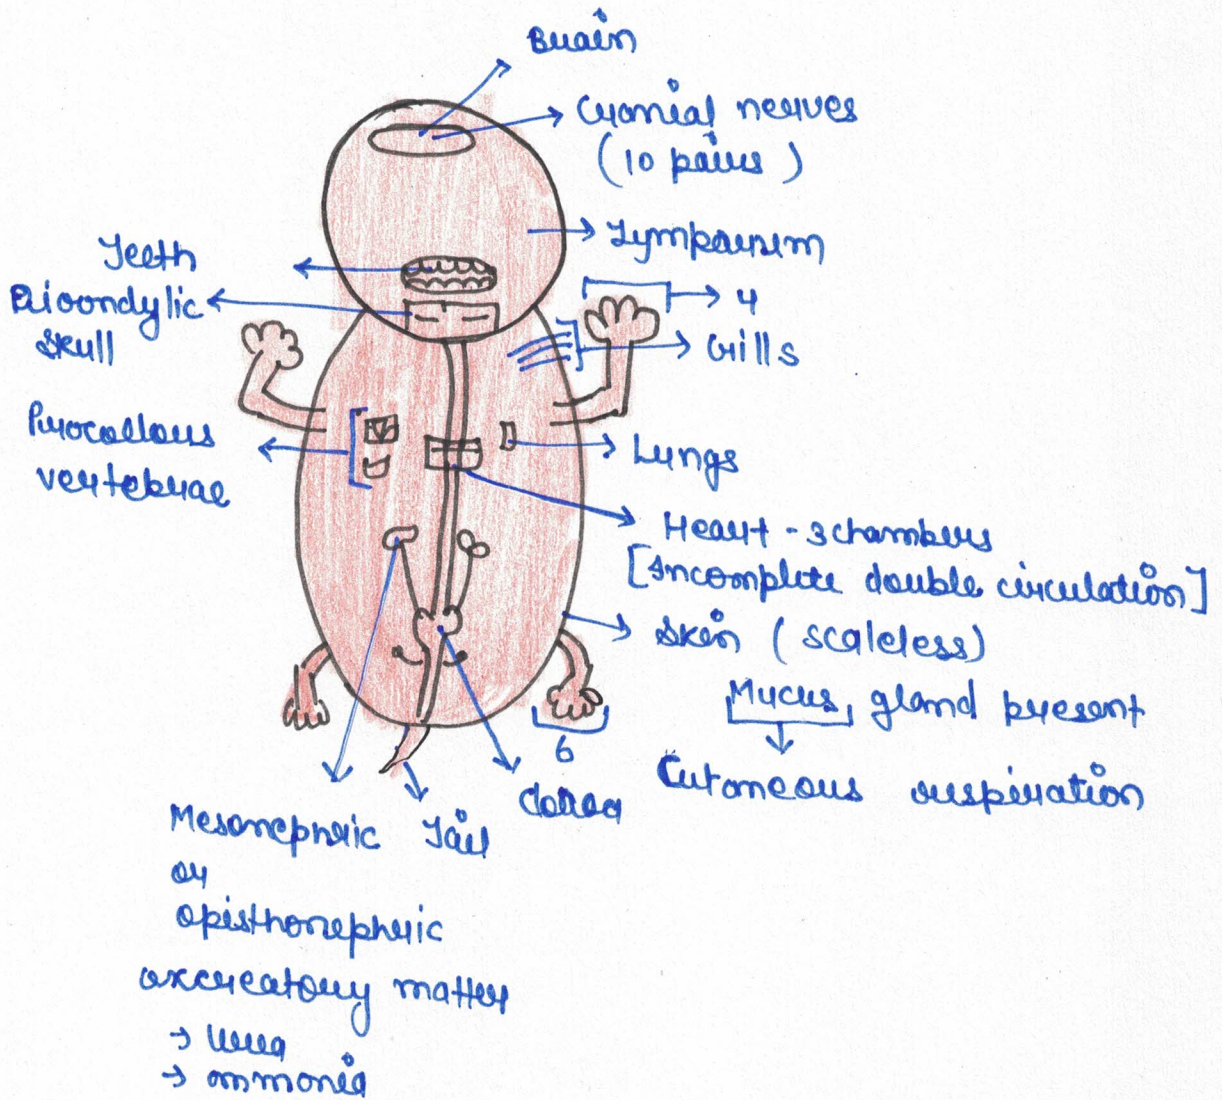 Brain
Cranial nerves
(10 pairs)
Tympanum
Teeth
Dicondylic
skull
4
Gills
Procoelous
vertebrae
Lungs
Heart - 3 chambers
[Incomplete double circulation]
Skin (scaleless)
Mucus, gland present
Cutaneous respiration
6
Tail
Mesonephric
or
opisthonephric
excreatory matter
→ Urea
→ ammonia